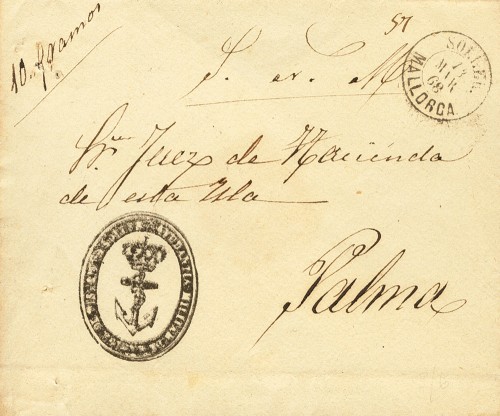 10 gramos
57
S. N. M.
SOLLER
MAR
68
MALLORCA
Sr. Juez de Hacienda
de esta Isla
Palma